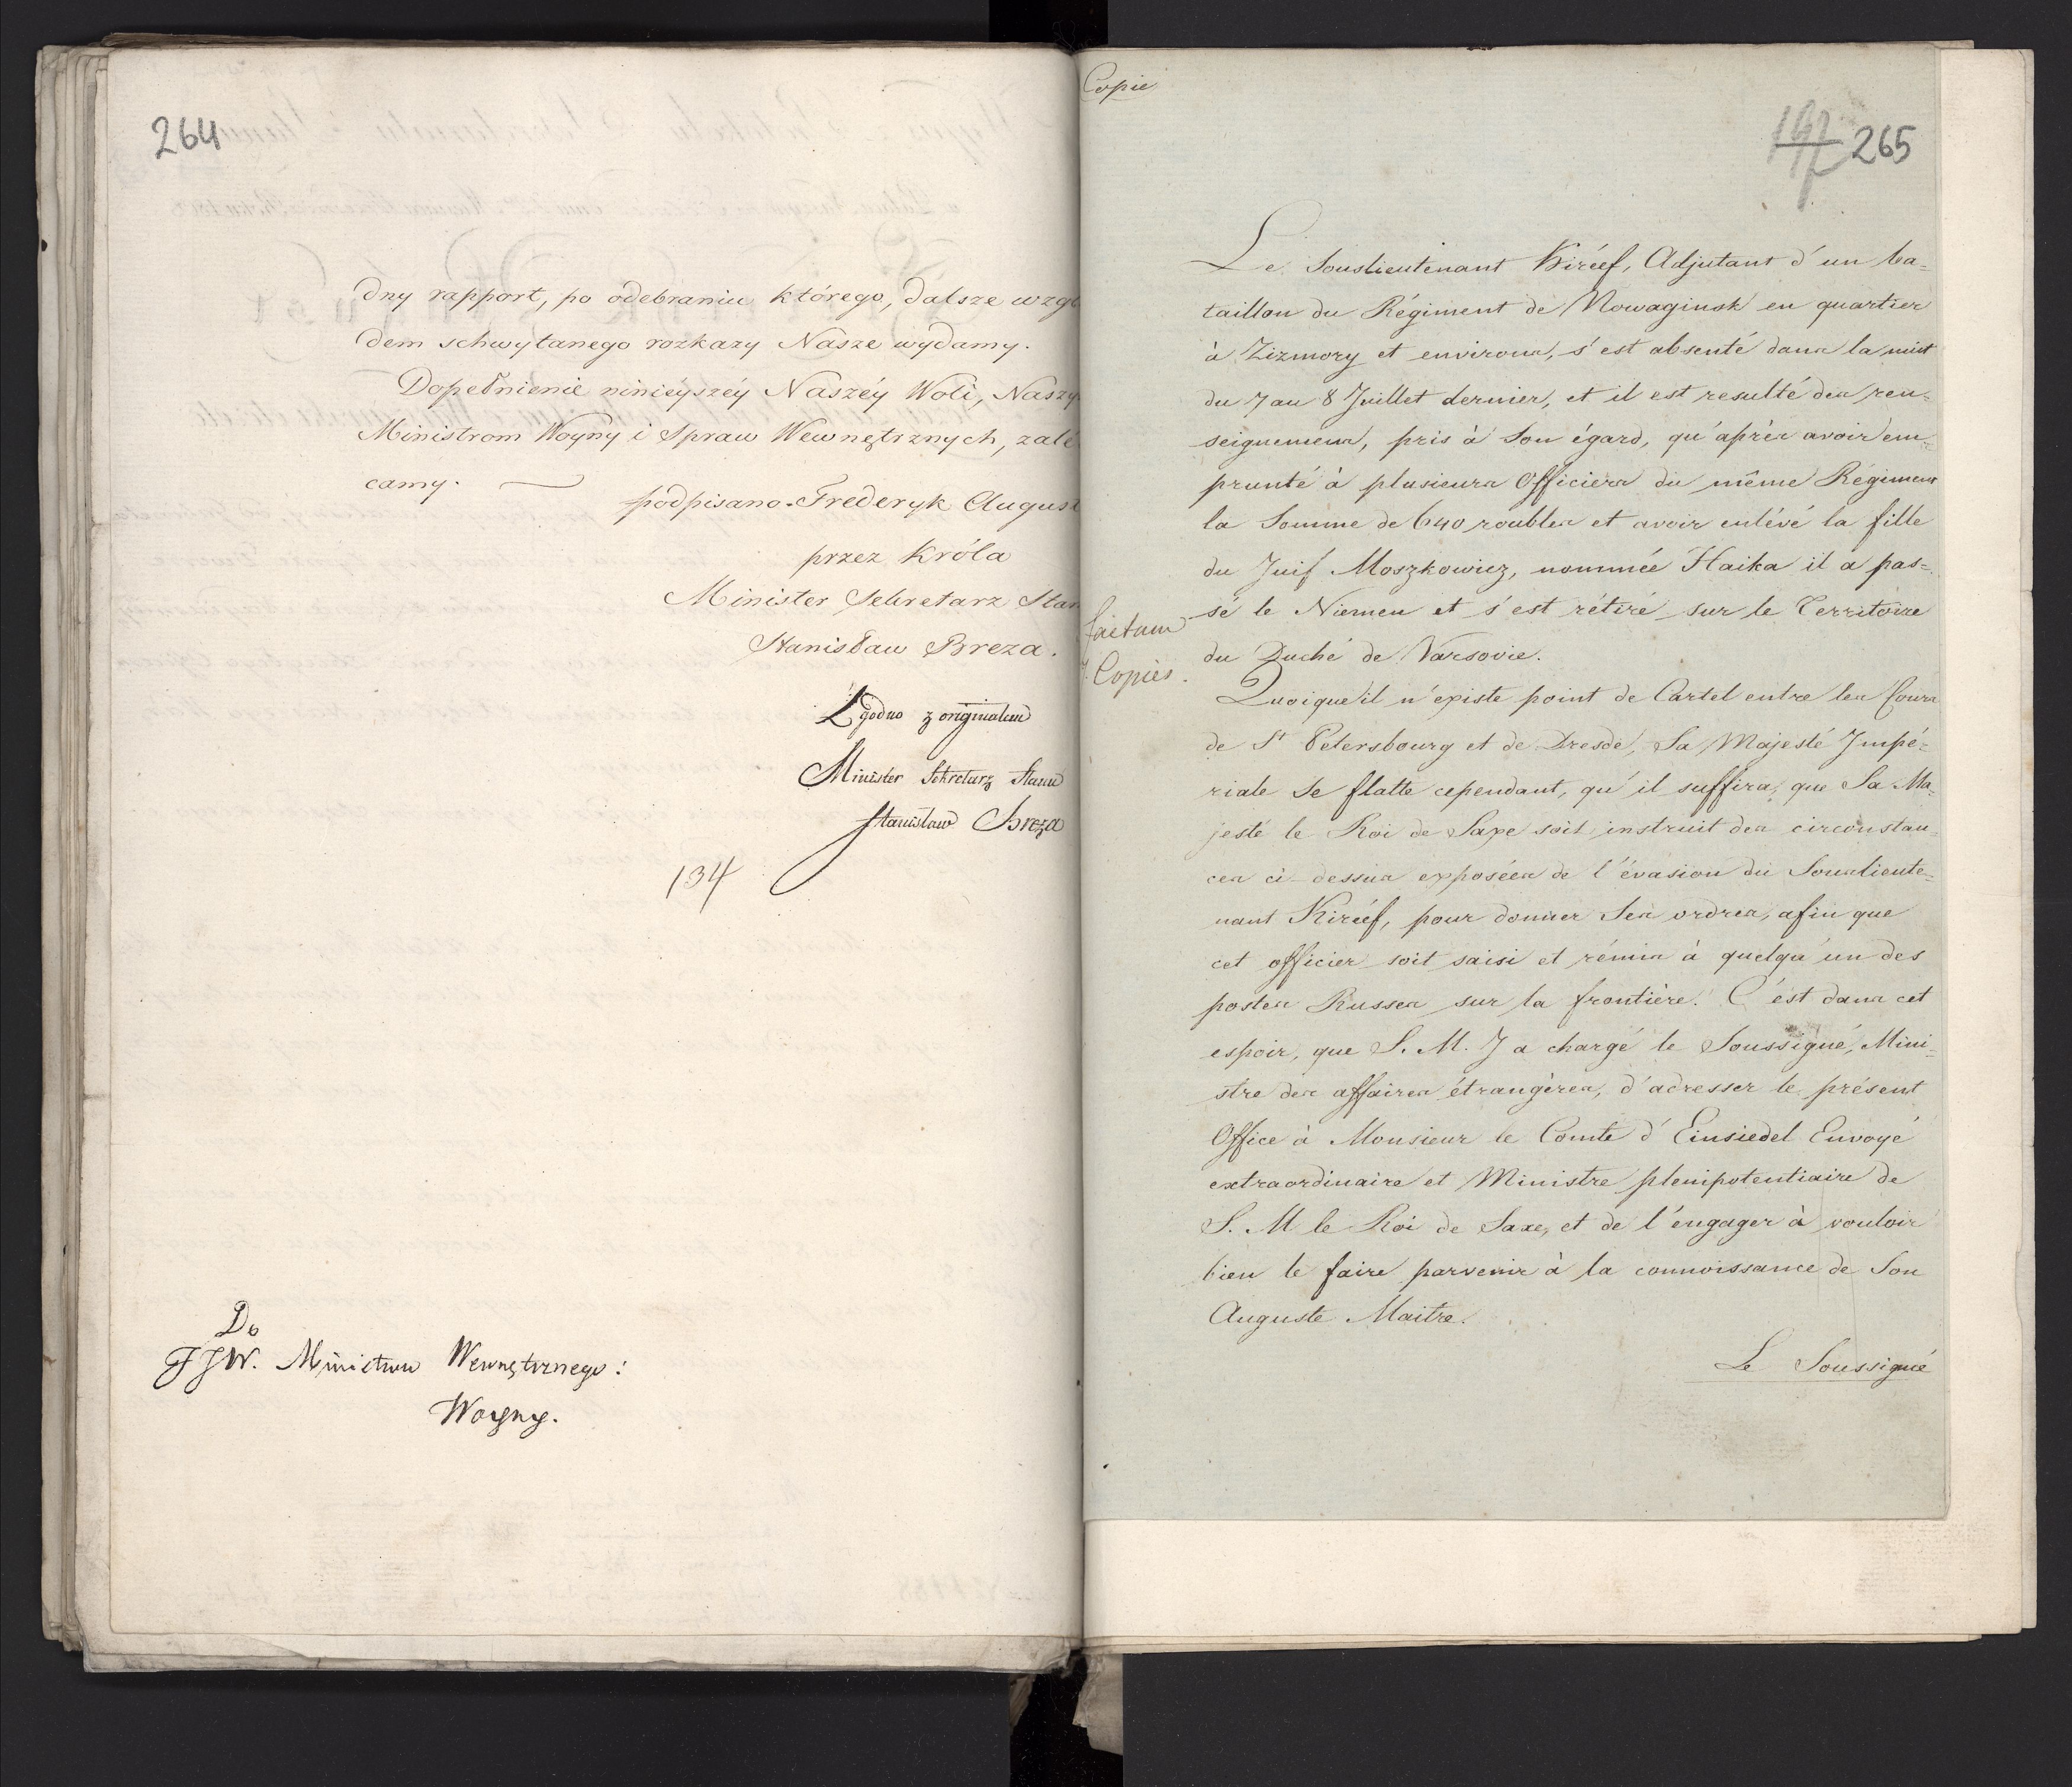 264
dny rapport, po odebraniu którego, dalsze wzglę
dem schwytanego rozkazy Nasze wydamy.
Dopełnienie ninieyszéy Naszéy Woli, Naszy
Ministrom Woyny i Spraw Wewnętrznych, zale
camy.
podpisano. Frederyk August
przez Króla
Minister Sekretarz Stan
Stanisław Breza.
Zgodno z oryginałem
Minister Sekretarz Stanu
Stanisław Breza
134
Do
JJW. Ministrów Wewnętrznego:
Woyny.
Copie
197 265
Le Souslieutenant Kiréef, Adjutant d'un ba=
taillon du Régiment de Nowaginsk en quartier
à Zizmory et environs, s'est absenté dans la nuit
du 7 au 8 Juillet dernier, et il est resulté des ren=
seignemens, pris à Son égard, qu'après avoir em=
prunté à plusieurs Officiers du même Régiment
la Somme de 640 roubles et avoir enlévé la fille
du Juif Moszkowicz, nommée Haika il a pas=
sé le Niemen et s'est rétiré sur le Territoire
factum
du Duché de Varsovie.
Copies.
Quoique il n'existe point de Cartel entre les Cours
de St Petersbourg et de Dresde, Sa Majesté Impé=
riale Se flatte cependant, qu'il suffira, que Sa Ma=
jesté le Roi de Saxe soit instruit des circonstan=
ces ci-dessus exposées de l'évasion du Souslieute=
nant Kiréef, pour donner Ses ordres, afin que
cet officier soit saisi et rémis à quelqu'un des
postes Russes sur la frontière. C'est dans cet
espoir, que S. M. J a chargé le Soussigné, Mini=
stre des affaires étrangères, d'adresser le présent
Office à Monsieur le Comte d'Einsiedel Envoyé
extraordinaire et Ministre plenipotentiaire de
S. M le Roi de Saxe, et de l'engager à vouloir
bien le faire parvenir à la connoissance de Son
Auguste Maitre.
Le Soussigné